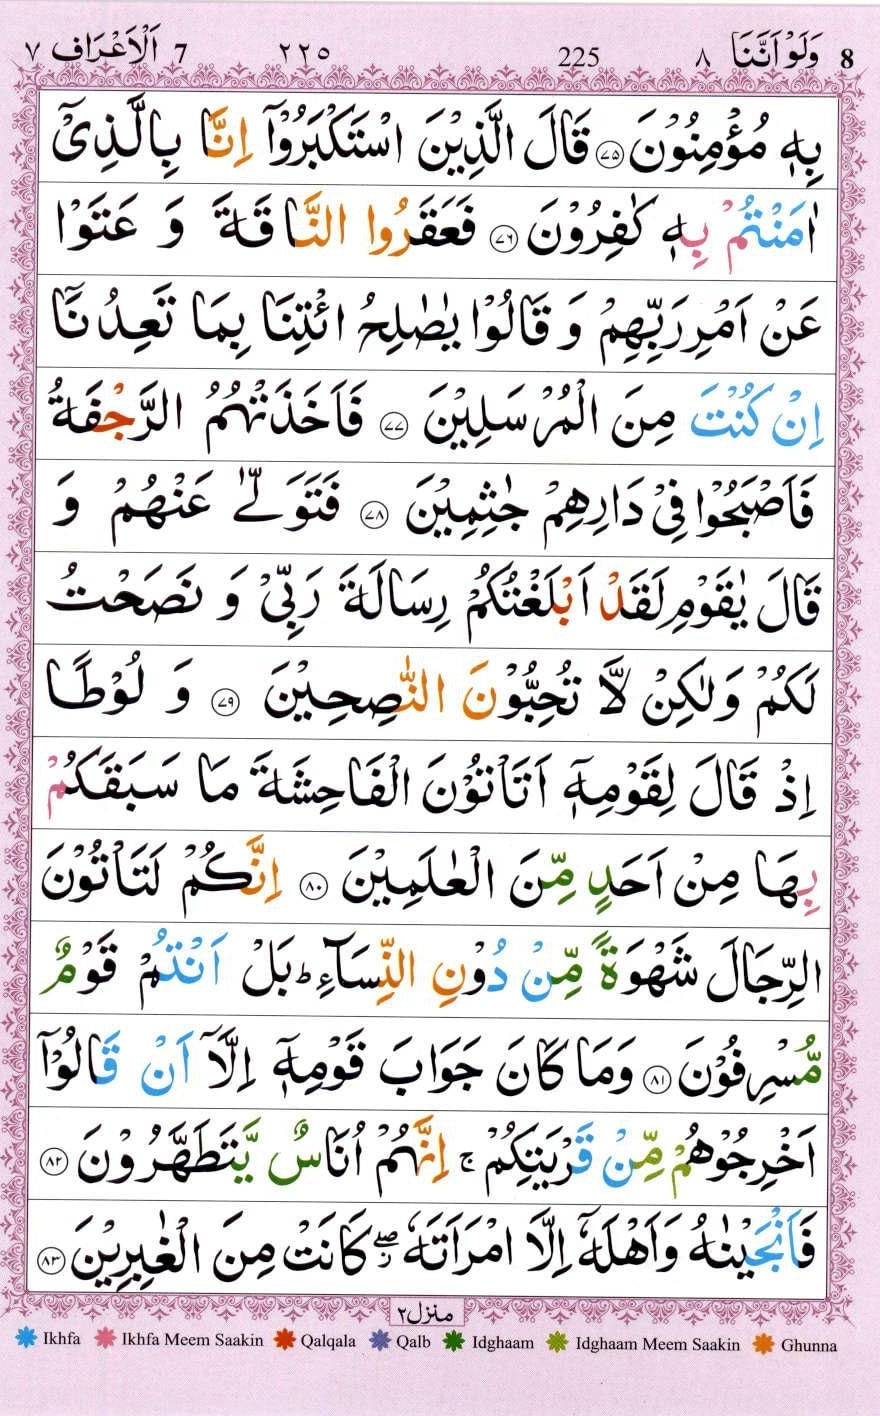 8 وَلَوْ اَنَّنَا ٨ 225 ٢٢٥ 7 اَلْاَعْرَاف ٧
بِهٖ مُؤْمِنُوْنَ ﴿٧٥﴾ قَالَ الَّذِيْنَ اسْتَكْبَرُوْٓا اِنَّا بِالَّذِيْٓ
اٰمَنْتُمْ بِهٖ كٰفِرُوْنَ ﴿٧٦﴾ فَعَقَرُوا النَّاقَةَ وَ عَتَوْا
عَنْ اَمْرِ رَبِّهِمْ وَ قَالُوْا يٰصٰلِحُ ائْتِنَا بِمَا تَعِدُنَآ
اِنْ كُنْتَ مِنَ الْمُرْسَلِيْنَ ﴿٧٧﴾ فَاَخَذَتْهُمُ الرَّجْفَةُ
فَاَصْبَحُوْا فِيْ دَارِهِمْ جٰثِمِيْنَ ﴿٧٨﴾ فَتَوَلّٰى عَنْهُمْ وَ
قَالَ يٰقَوْمِ لَقَدْ اَبْلَغْتُكُمْ رِسَالَةَ رَبِّيْ وَ نَصَحْتُ
لَكُمْ وَلٰكِنْ لَّا تُحِبُّوْنَ النّٰصِحِيْنَ ﴿٧٩﴾ وَ لُوْطًا
اِذْ قَالَ لِقَوْمِهٖٓ اَتَاْتُوْنَ الْفَاحِشَةَ مَا سَبَقَكُمْ
بِهَا مِنْ اَحَدٍ مِّنَ الْعٰلَمِيْنَ ﴿٨٠﴾ اِنَّكُمْ لَتَاْتُوْنَ
الرِّجَالَ شَهْوَةً مِّنْ دُوْنِ النِّسَآءِ ؕ بَلْ اَنْتُمْ قَوْمٌ
مُّسْرِفُوْنَ ﴿٨١﴾ وَمَا كَانَ جَوَابَ قَوْمِهٖٓ اِلَّآ اَنْ قَالُوْٓا
اَخْرِجُوْهُمْ مِّنْ قَرْيَتِكُمْ ۚ اِنَّهُمْ اُنَاسٌ يَّتَطَهَّرُوْنَ ﴿٨٢﴾
فَاَنْجَيْنٰهُ وَاَهْلَهٗٓ اِلَّا امْرَاَتَهٗ ۖز كَانَتْ مِنَ الْغٰبِرِيْنَ ﴿٨٣﴾
منزل ٢
Ikhfa Ikhfa Meem Saakin Qalqala Qalb Idghaam Idghaam Meem Saakin Ghunna